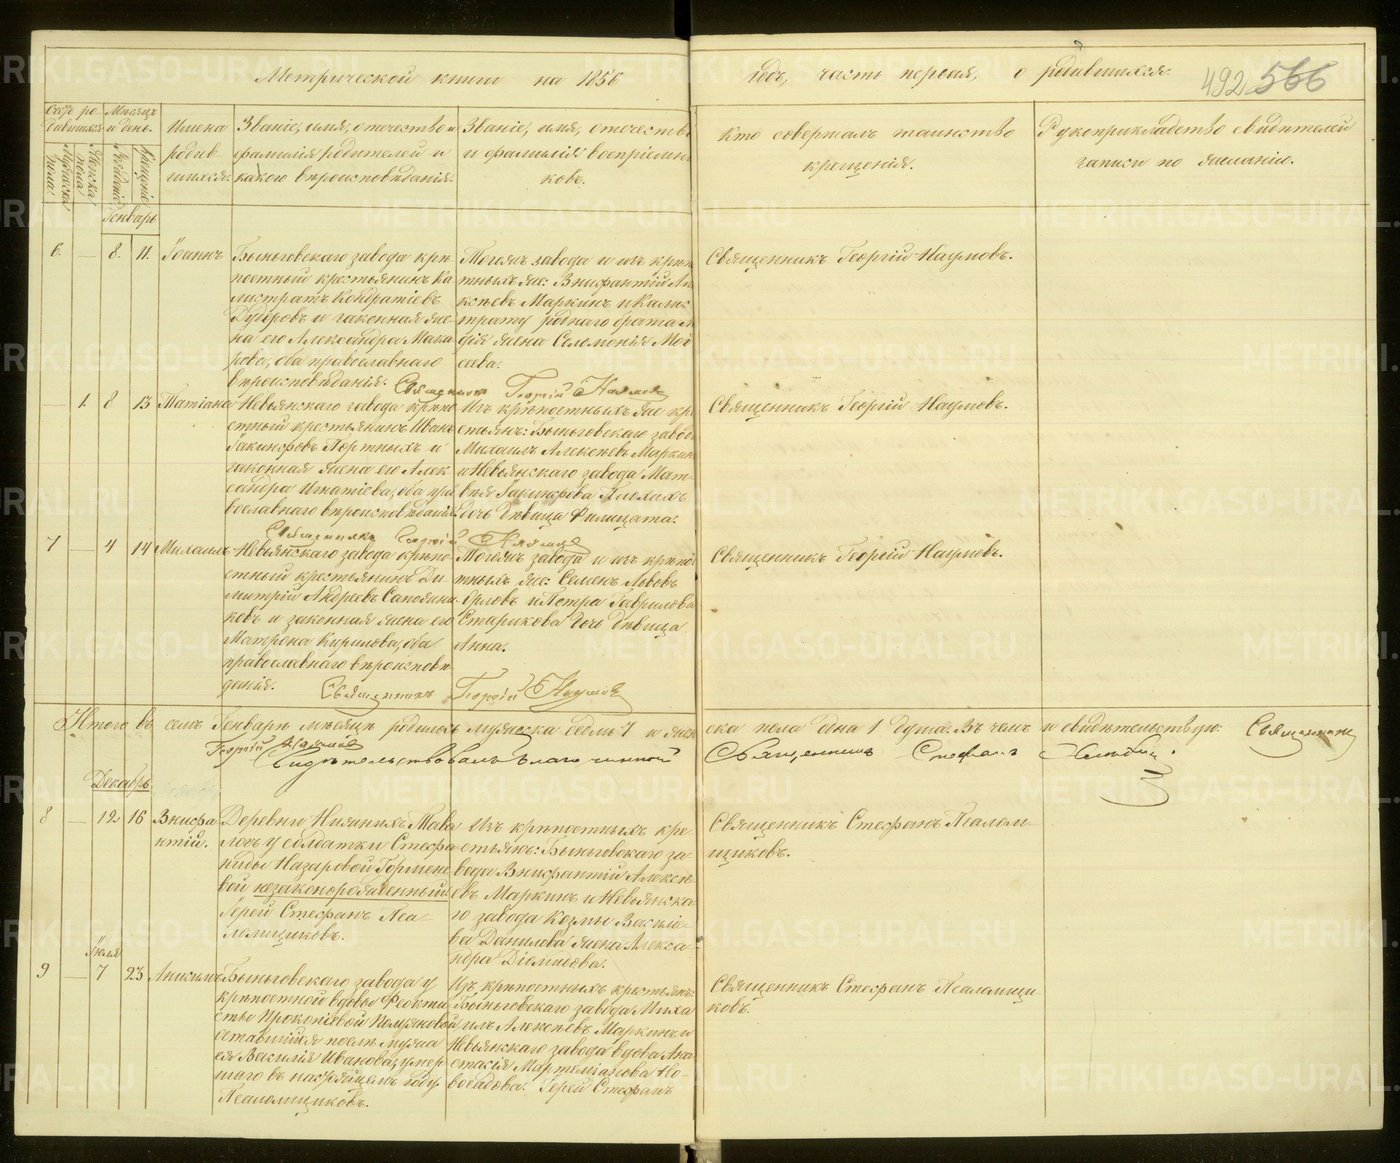 Метрической книги на 1856 годъ, часть первая, о родившихся.
492 566
Счетъ родившихся.
Мужеска пола.
Женска пола.
Мѣсяцъ и день.
Рожденія
Крещенія
Имена
родив-
шихся.
Званіе, имя, отечество и
фамилія родителей и
какого вѣроисповѣданія.
Званіе, имя, отечество
и фамилія воспріемни-
ковъ.
Кто совершалъ таинство
крещенія.
Рукоприкладство свидѣтелей
записи по желанію.
Генварь
6. — 8. 11. Іоаннъ
Быньговскаго завода крѣ-
постный крестьянинъ Ка-
листратъ Кондратіевъ
и законная же-
на его Александра Мака-
рова, оба православнаго
вѣроисповѣданія.
Тогожъ завода и изъ крѣпос-
тныхъ же: Внифантій Але-
ксѣевъ Маркинъ и Калис-
трату роднаго брата
жена Соломонія Мои-
сеева.
Священникъ Георгій Наумовъ
Священникъ Георгій Наумовъ.
— 1. 8 13 Татіана
Невьянскаго завода крѣпо-
стный крестьянинъ Иванъ
Іакинфовъ Портныхъ и
законная жена его Алек-
сандра Игнатіева, оба пра-
вославнаго вѣроисповѣданія.
Изъ крѣпостныхъ же кре-
стьянъ: Быньговскаго завода
Михаилъ Алексѣевъ Маркинъ
и Невьянскаго завода Мат-
вѣя Іакинфова
дочь дѣвица Филицата.
Священникъ Георгій Наумовъ
Священникъ Георгій Наумовъ.
7 — 4 14 Михаилъ
Невьянскаго завода крѣпо-
стный крестьянинъ Ди-
митрій Андреевъ Сапожни-
ковъ и законная жена его
Матрона Кирилова, оба
православнаго вѣроисповѣ-
данія.
Тогожъ завода и изъ крѣпос-
тныхъ же: Семенъ Львовъ
Орловъ и Петра Гаврилова
Старикова дочь дѣвица
Анна.
Священникъ Георгій Наумовъ
Священникъ Георгій Наумовъ.
Итого въ семъ Генварѣ мѣсяцѣ родилось мужеска седмь 7 и женска пола одна 1 душа. Въ чемъ и свидѣтельствую: Священникъ
Георгій Наумовъ
Свидѣтельствовалъ благочинный Священникъ Стефанъ
Декабрь
8 — 12 16 Внифа-
нтій.
Деревни Нижнихъ Тавол-
логъ у солдатки Стефа-
ниды Назаровой Гормене-
вой незаконорожденный.
Іерей Стефанъ Пса-
ломщиковъ.
Изъ крѣпостныхъ кре-
стьянъ: Быньговскаго за-
вода Внифантій Алексѣ-
евъ Маркинъ и Невьянска-
го завода Козмы Василіе-
ва Данилова жена Алекса-
ндра Діомидова.
Священникъ Стефанъ Псалом-
щиковъ.
Іюля
9 — 7 23 Анисимъ
Быньговскаго завода у
крѣпостной вдовы Феокти-
сты Прокопіевой
оставшійся послѣ мужа
ея Василія Иванова, умер-
шаго въ настоящемъ году.
Псаломщиковъ.
Изъ крѣпостныхъ крестьянъ:
Быньговскаго завода Миха-
илъ Алексѣевъ Маркинъ и
Невьянскаго завода вдова Ана-
стасія Мартеміанова Но-
восадова. Іерей Стефанъ
Священникъ Стефанъ Псаломщи-
ковъ.
METRIKI.GASO-URAL.RU